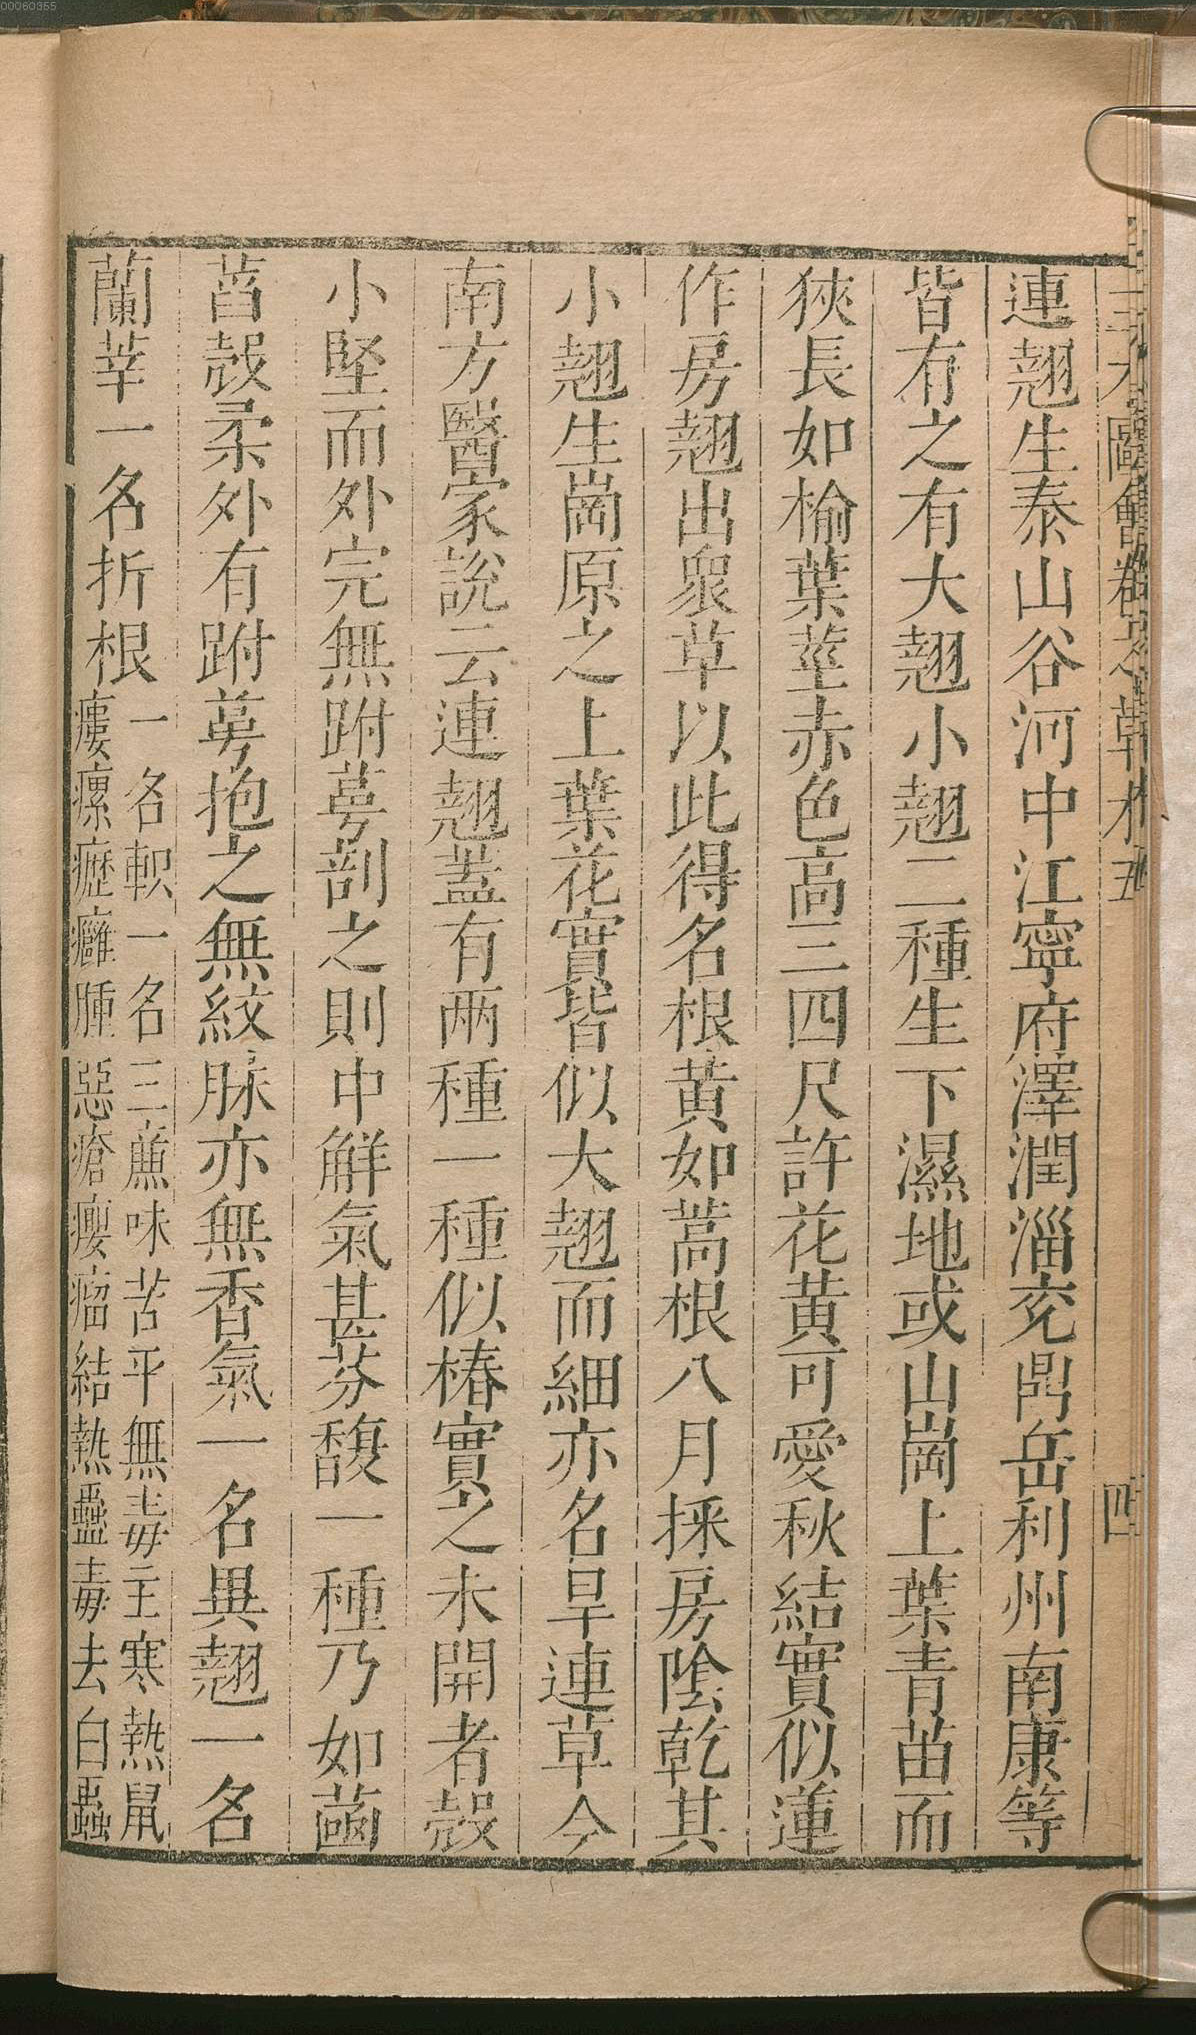 00060355
三才圖會卷之草木五 四
連翹生泰山谷河中江寧府澤潤淄兖鼎岳利州南康等
皆有之有大翹小翹二種生下濕地或山崗上葉青苗而
狹長如榆葉莖赤色高三四尺許花黃可愛秋結實似蓮
作房翹出衆草以此得名根黃如蒿根八月採房陰乾其
小翹生崗原之上葉花實皆似大翹而細亦名旱連草今
南方醫家說云連翹蓋有兩種一種似椿實之未開者殼
小堅而外完無跗萼剖之則中觧氣甚芬馥一種乃如菡
萏殼柔外有跗萼抱之無紋脉亦無香氣一名異翹一名
蘭莘一名折根
一名軹一名三蔗味苦平無毒主寒熱鼠
瘻瘰癧癰腫惡瘡癭瘤結熱蠱毒去白蟲